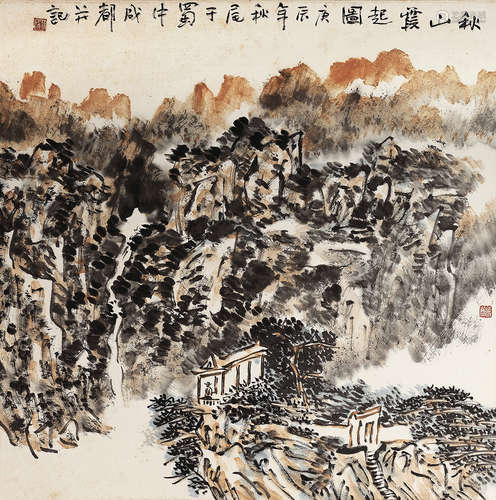 秋山霞起圖庚辰年秋尾于蜀中成都并記